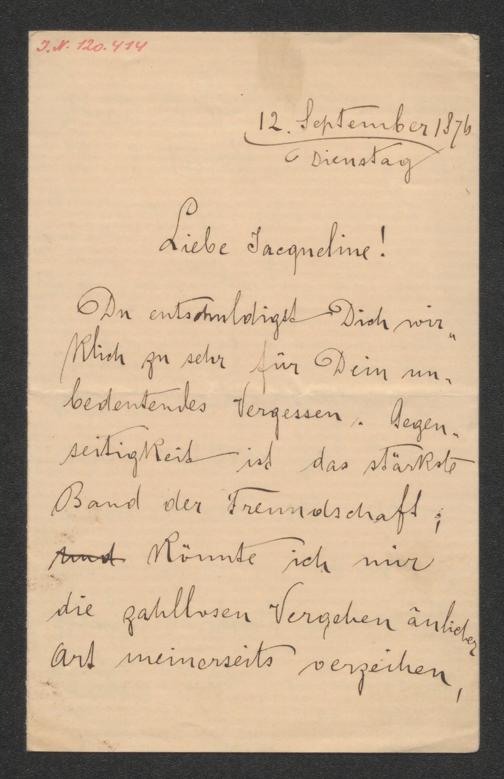 I.N. 120.414
12. September 1876
Dienstag
Liebe Jacqueline!
Du entschuldigst Dich wir„
klich zu sehr für Dein un„
bedeutendes Vergessen. Gegen„
seitigkeit ist das stärkste
Band der Freundschaft;
und könnte ich mir
die zahllosen Vergehen änlicher
Art meinerseits verzeihen,